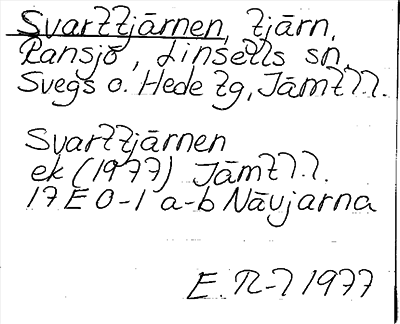 Svarttjärnen, tjärn,
Ransjö, Linsells sn,
Svegs o. Hede tg, Jämtl.l.
Svarttjärnen
ek (1977) Jämtl.l.
17 E 0-1 a-b Nävjarna
E. N-l 1977